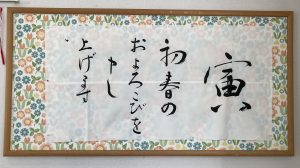 寅
初春の
およろこびを
申し
上げます